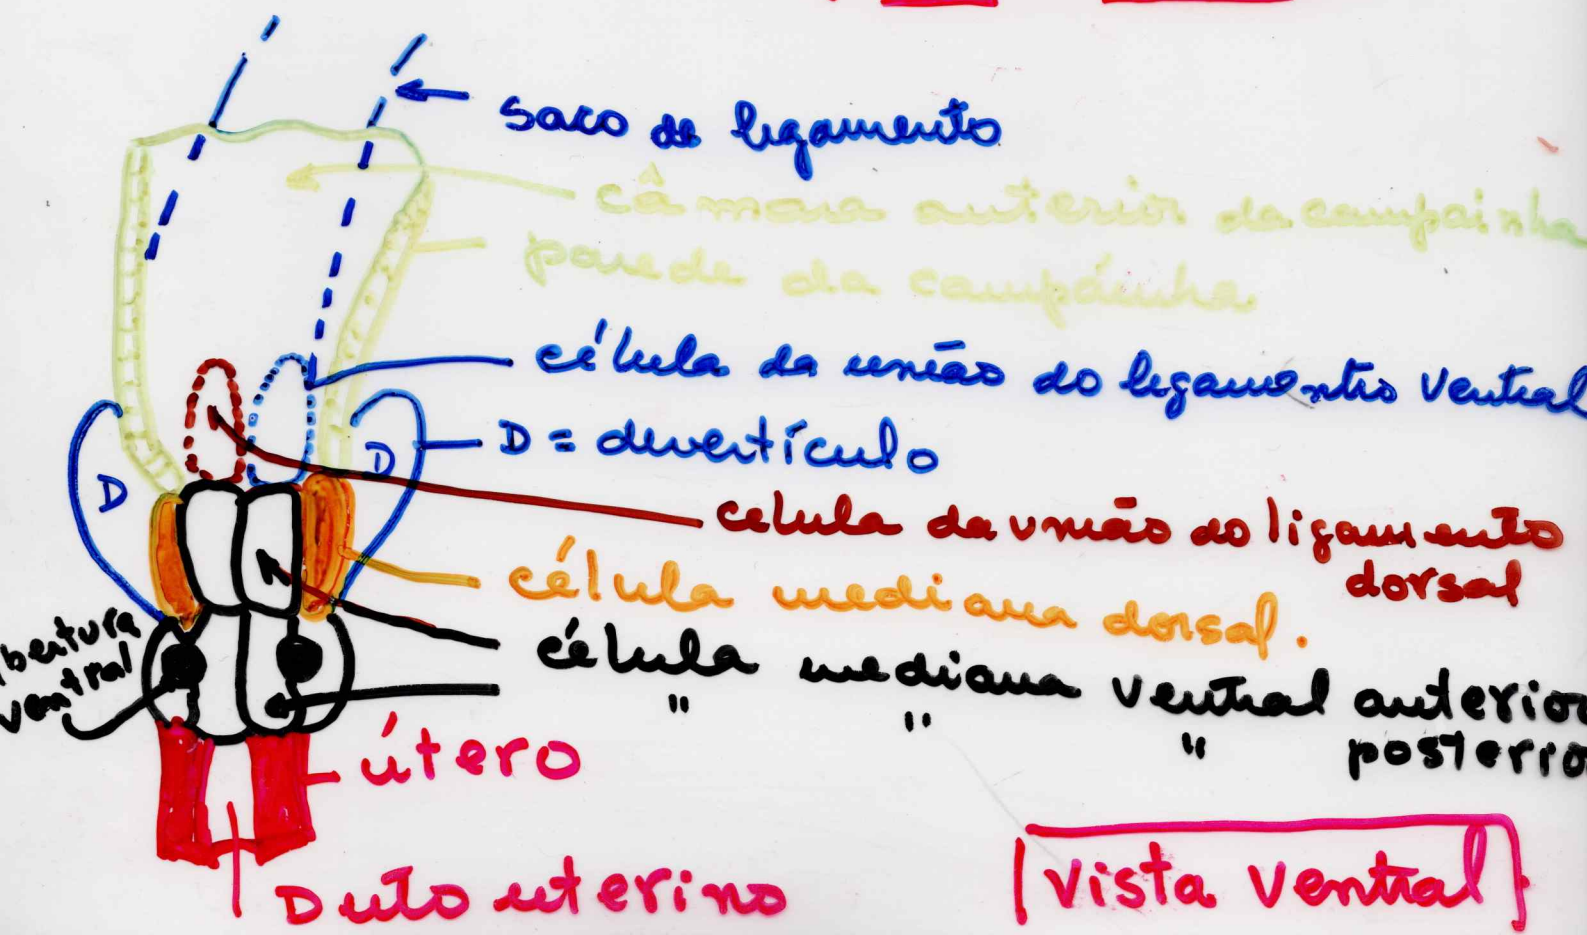 saco de ligamento
câmara anterior da campainha
parede da campainha
célula da união do ligamento ventral
D = divertículo
D
D
celula da união do ligamento
dorsal
célula mediana dorsal.
bertura
ventral
célula mediana ventral anterior
" " " posterio
útero
Duto uterino
Vista Ventral